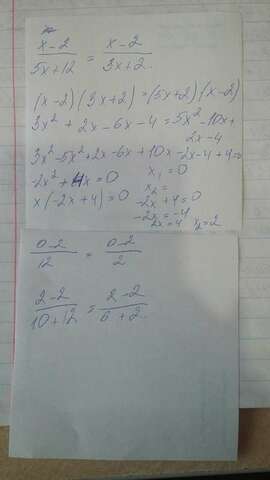 x-2/5x+12 = x-2/3x+2
(x-2)(3x+2)=(5x+2)(x-2)
3x²+2x-6x-4=5x²-10x+
2x-4
3x²-5x²+2x-6x+10x-2x-4+4=0
-2x²+4x=0 x₁=0
x(-2x+4)=0 x₂=
-2x+4=0
-2x=-4
2x=4 x₂=2
0-2/12 = 0-2/2
2-2/10+12 = 2-2/6+2